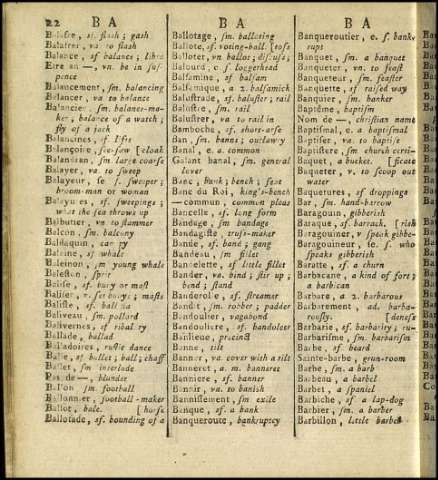 22 B A
Balafre, sf. slash ; gash
Balafrer, va. to slash
Balance, sf. balance ; libra
Etre en —, vn. be in sus-
pence
Balancement, sm. balancing
Balancer, va. to balance
Balancier, sm. balance-ma-
ker ; balance of a watch ;
fly of a jack
Balancines, sf. lifts
Balançoire, see-saw [cloak
Balandran, sm. large coarse
Balayer, va. to sweep
Balayeur, se. s. sweeper ;
broom-man or woman
Balayures, sf. sweepings ;
what the sea throws up
Balbutier, va. to stammer
Balcon, sm. balcony
Baldaquin, canopy
Baleine, sf whale
Baleinon, sm young whale
Baleston, sprit
Balise, sf. buoy or mast
Baliser, v. set buoys ; masts
Baliste, sf. ballista
Baliveau, sm. pollard
Balivernes, sf ribaldry
Ballade, ballad
Balladoires, rustic dance
Balle, sf bullet ; ball ; chaff
Ballet, sm interlude
Pas de —, blunder
Ballon, sm football
Ballonnier, football-maker
Ballot, bale. [horse
Ballotade, sf. bounding of a
B A
Ballotage, sm. balloting
Ballote, sf. voting-ball. [toss
Balloter, vn ballot ; discuss ;
Balourd, e. s. loggerhead
Balsamine, sf balsam
Balsamique, a 2. balsamick
Balustrade, sf. baluster ; rail
Balustre, sm. rail
Balustrer, va. to rail in
Bamboche, sf. short-arse
Ban, sm. banns ; outlawry
Banal. a common
Galant banal, sm. general
lover
Banc, bank ; bench ; seat
Banc du Roi, king's-bench
— commun, common pleas
Bancelle, sf. long form
Bandage, sm bandage
Bandagiste, truss-maker
Bande, sf. band ; gang
Bandeau, sm fillet
Bandelette, sf little fillet
Bander, va. bind ; stir up ;
bend ; stand
Banderole, sf. streamer
Bandit, sm. robber ; padder
Bandoulier, vagabond
Bandouliere, sf. bandoleer
Banlieue, precinct
Banne, tilt
Banner, va cover with a tilt
Banneret, a. m. banneret
Banniere, sf. banner
Bannir, va. to banish
Bannissement, sm exile
Banque, sf. a bank
Banqueroute, bankruptcy
B A
Banqueroutier, e. s. bank-
rupt
Banquet, sm. a banquet
Banqueter, vn. to feast
Banqueteur, sm. feaster
Banquette, sf raised way
Banquier, sm. banker
Baptême, baptism
Nom de —, christian name
Baptismal, e. a baptismal
Baptiser, va. to baptize
Baptistere, sm. church certi-
Baquet, a bucket. [ficate
Baqueter, v. to scoop out
water
Baquetures, sf droppings
Bar, sm. hand-barrow
Baragouin, gibberish
Baraque, sf. barrack. [rish
Baragouiner, v speak gibbe-
Baragouineur, se. s. who
speaks gibberish
Baratte, sf. a churn
Barbacane, a kind of fort ;
a barbican
Barbare, a 2. barbarous
Barbarement, ad. barba-
rously.
Barbarie, sf. barbarity ; ru-
Barbarisme, sm. barbarism
Barbe, sf. beard
Sainte-barbe, gun-room
Barbe, sm. a barb
Barbeau, a barbel
Barbet, a spaniel
Barbiche, sf a lap-dog
Barbier, sm. a barber
Barbillon, little barbel